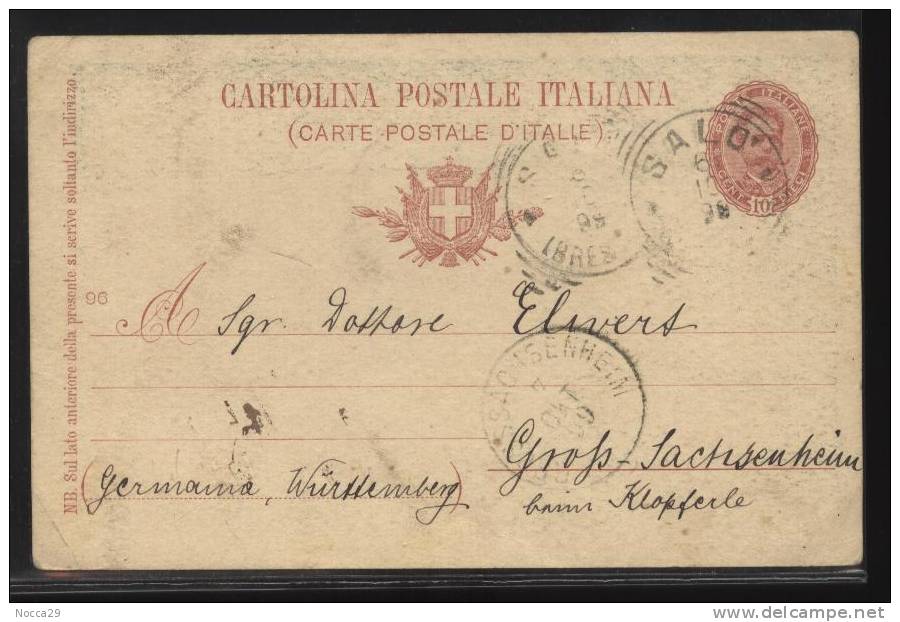 CARTOLINA POSTALE ITALIANA
(CARTE POSTALE D'ITALIE)
POSTE ITALIANE
CENT. DIECI
10
SALÒ
98
SALÒ
(BRES
96
NB. Sul lato anteriore della presente si scrive soltanto l'indirizzo.
A Sgr. Dottore Elwert
SACHSENHEIM
OKT
Gross-Sachsenheim
(Germania, Württemberg)
beim Klopferle
Nocca29
www.delcampe.net